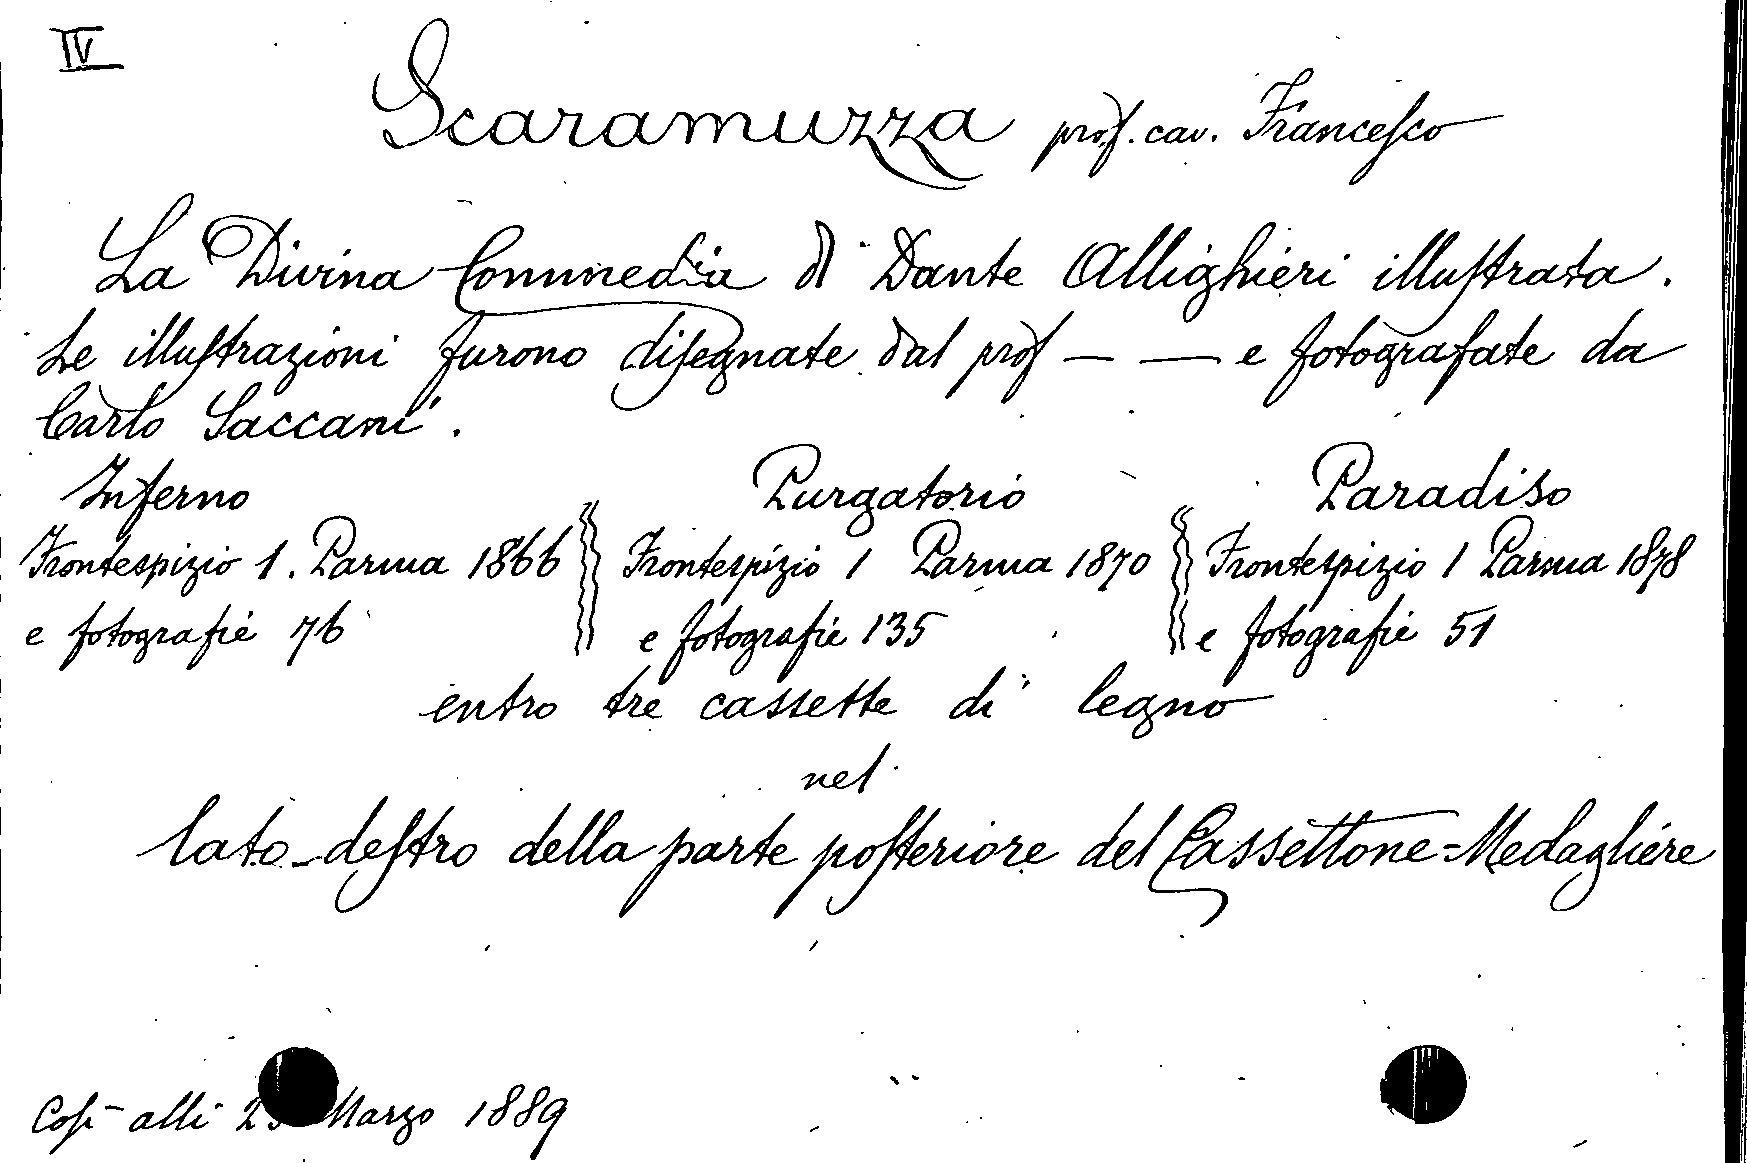 IV
Scaramuzza prof. cav. Francesco
La Divina Commedia di Dante Allighieri illustrata.
Le illustrazioni furono disegnate dal prof — — e fotografate da
Carlo Saccani.
Inferno Purgatorio Paradiso
Frontespizio 1. Parma 1866 Frontespizio 1 Parma 1870 Frontespizio 1 Parma 1878
e fotografie 76 e fotografie 135 e fotografie 51
entro tre cassette di legno
nel
lato-destro della parte posteriore del Cassettone=Medagliére
Così alli Marzo 1889